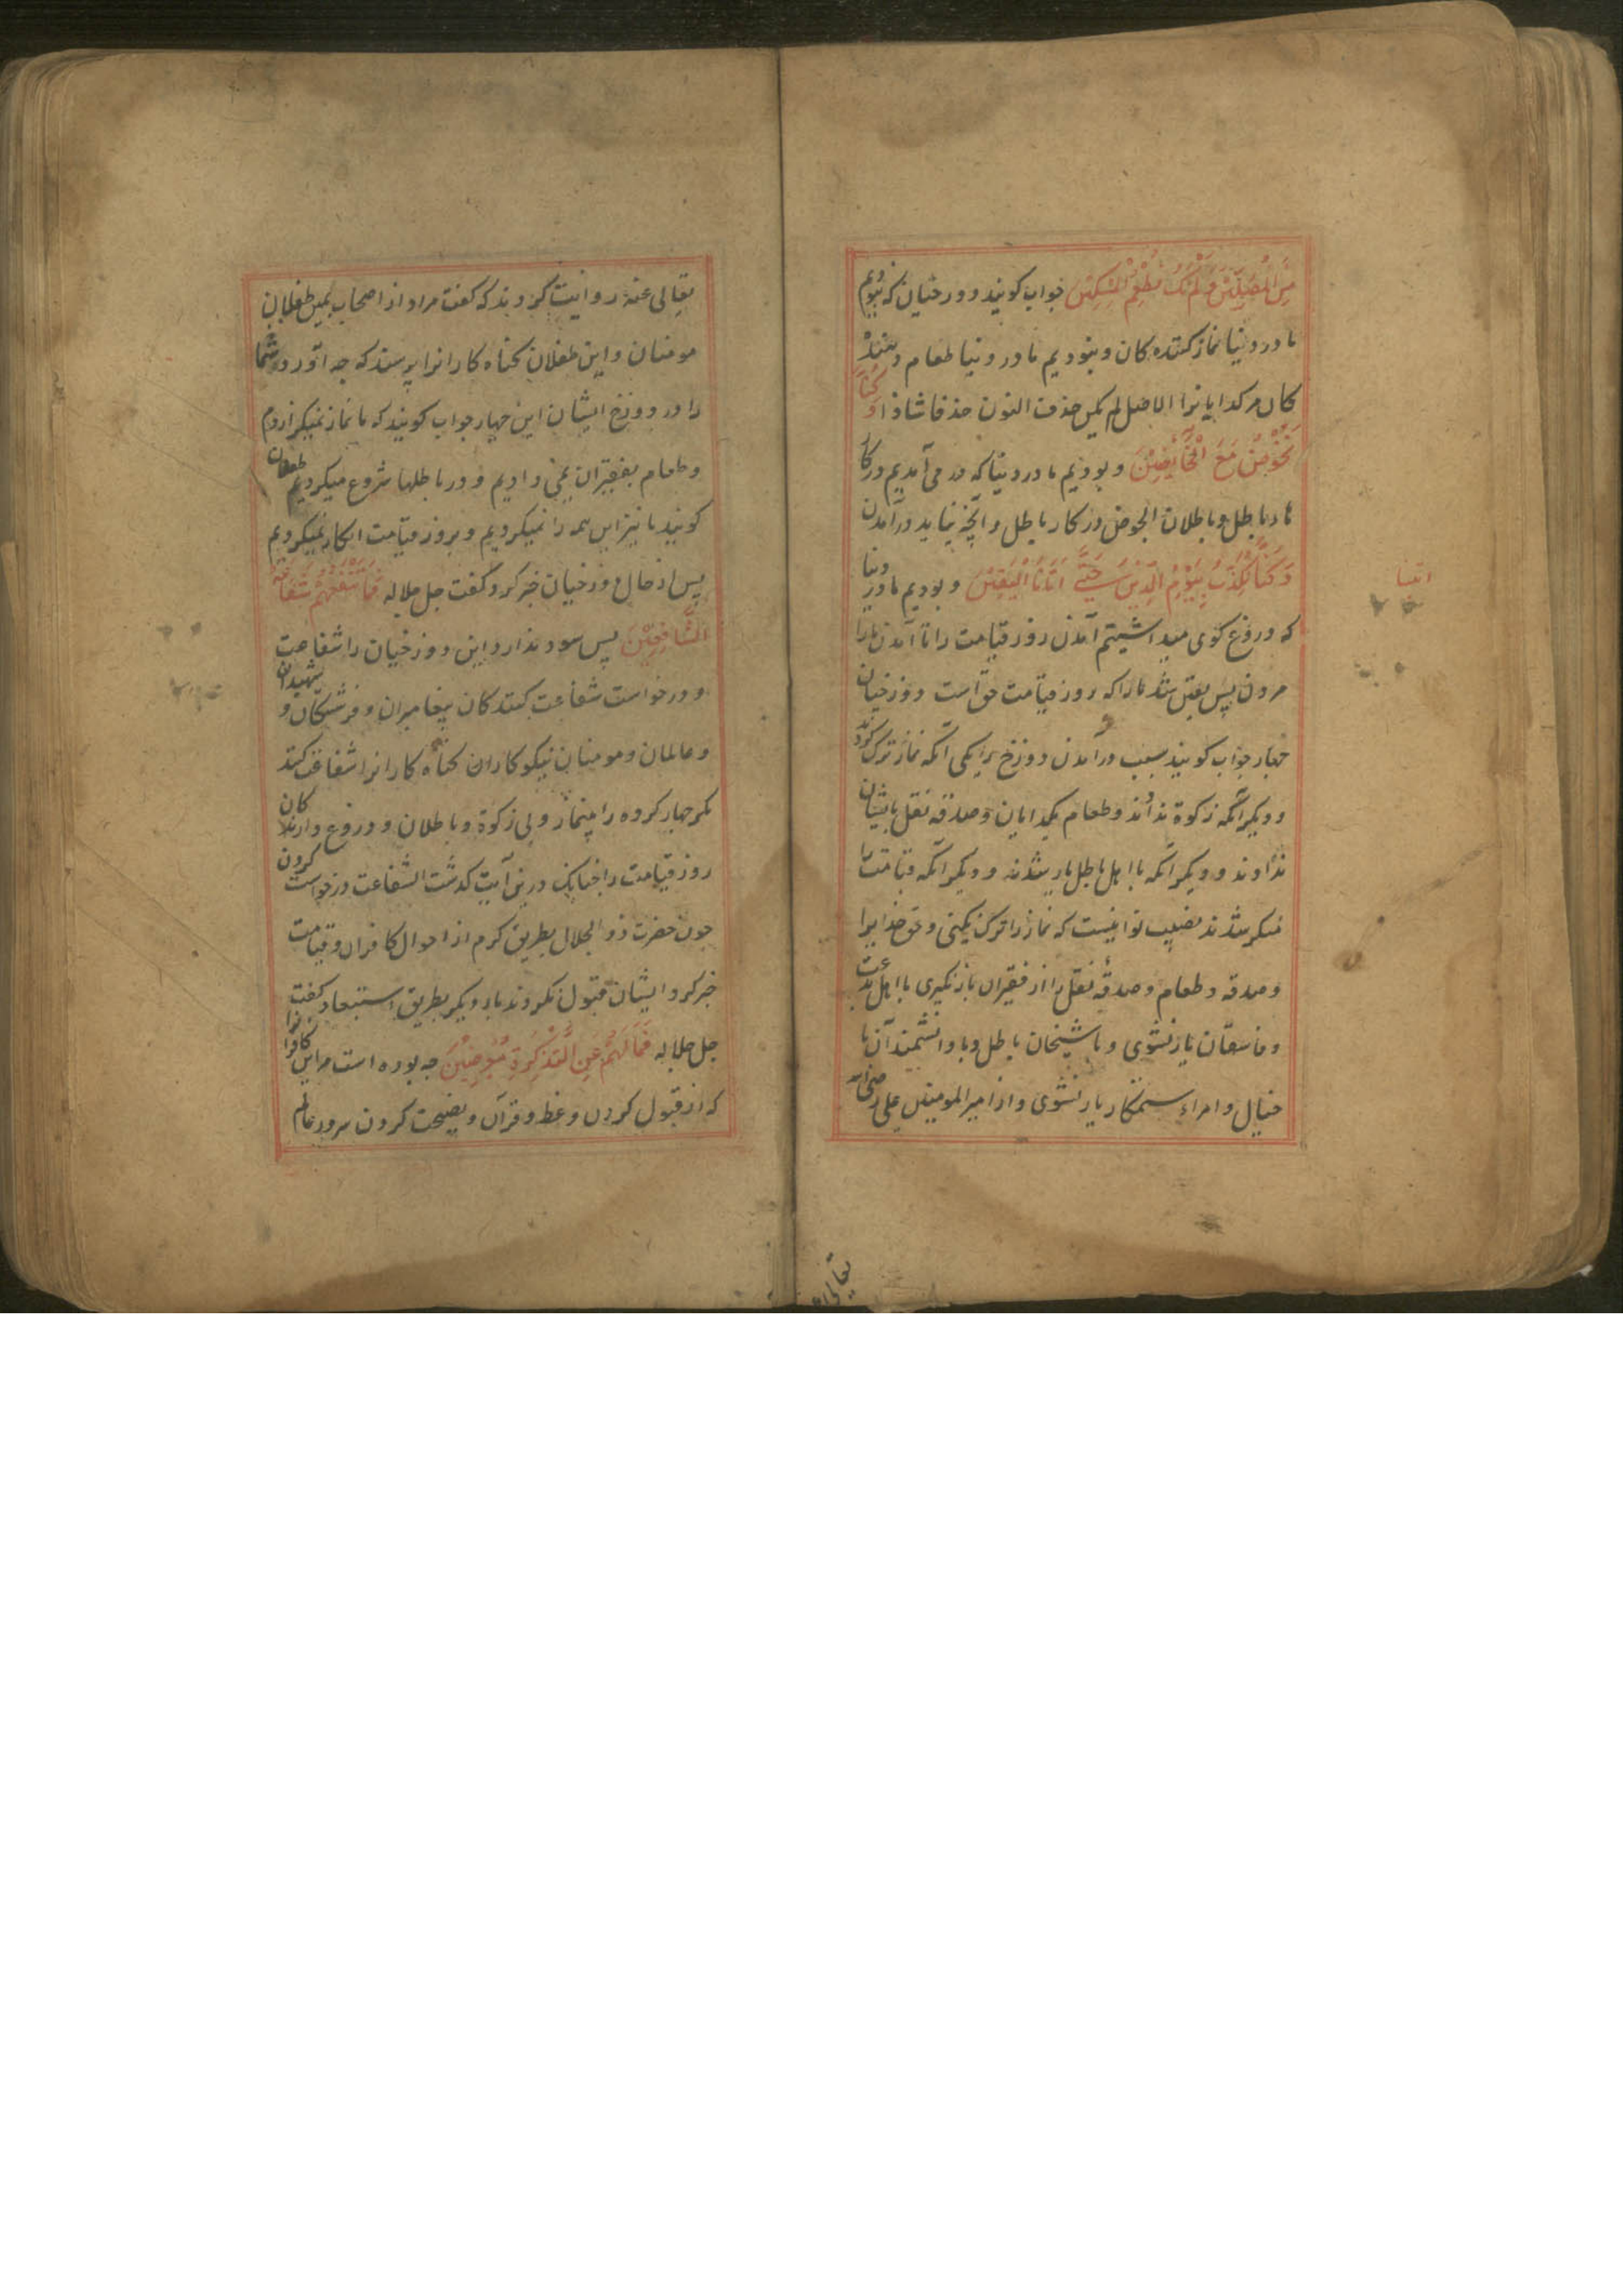 مِنَ الْمُصَلِّيْنَ وَلَمْ نَكُ نُطْعِمُ الْمِسْكِيْنَ جواب كويند دوزخيان كه نبوديم
ما در دنيا نماز كننده كان و نبوديم ما در دنيا طعام دهنده
كان مر كدايانرا الاصل لم يكن حذفت النون حذفا شاذا وَكُنَّا
نَخُوْضُ مَعَ الْخَآئِضِيْنَ و بوديم ما در دنيا كه در مى آمديم در كار
ها با باطل و باطلان الخوض در كار باطل و آنچه نيايد در آمدن
وَكُنَّا نُكَذِّبُ بِيَوْمِ الدِّيْنِ حَتَّى اَتَانَا الْيَقِيْنُ و بوديم ما در دنيا
كه دروغ كوى ميداشتيم آمدن روز قيامت را تا آمدن مارا
مردن پس يقين شد مارا كه روز قيامت حق است دوزخيان
چهار جواب كويند سبب در آمدن دوزخ را يكى آنكه نماز ترك كردند
و ديكر آنكه زكوة ندادند و طعام بكدايان و صدقه نفل بايشان
ندادند و ديكر آنكه با اهل باطل يار شدند و ديكر آنكه قيامت را
منكر شدند نصيب تو اينست كه نماز را ترك نكنى و حق خدايرا
و صدقه و طعام و صدقهٔ نفل را از فقيران باز نكيرى با اهل بدعت
و فاسقان يار نشوى و با شيخان باطل و با دانشمندان با
خيال و امراء ستمكار يار نشوى و از امير المومنين على رضى الله
تعالى
تعالى عنه روايت كردند كه كفت مراد از اصحاب يمين طفلان
مومنان و اين طفلان كناه كارانرا پرسند كه چه آورد شما
را در دوزخ ايشان اين چهار جواب كويند كه ما نماز نميكزارديم
و طعام بفقيران نمى داديم و در باطلها شروع ميكرديم طفلان
كويند ما نيز اين همه را نميكرديم و بروز قيامت انكار نميكرديم
پس از حال دوزخيان خبر كرد و كفت جل جلاله فَمَا تَنْفَعُهُمْ شَفَاعَةُ
الشَّافِعِيْنَ پس سود ندارد اين دوزخيان را شفاعت
و درخواست شفاعت كنند كان پيغامبران و فرشتكان و شهيدان
و عالمان و مومنان نيكو كاران كناه كارانرا شفاعت كنند
مكر چهار كروه را بينماز و بى زكوة و باطلان و دروغ دارند كان
روز قيامت را چنانك درين آيت كذشت الشفاعت درخواست كردن
چون حضرت ذو الجلال بطريق كرم از احوال كافران و قيامت
خبر كرد ايشان قبول نكردند بار ديكر بطريق استبعاد كفت
جل جلاله فَمَا لَهُمْ عَنِ التَّذْكِرَةِ مُعْرِضِيْنَ چه بوده است مر اين كافرانرا
كه از قبول كردن وعظ و قرآن و نصيحت كردن سرور عالم